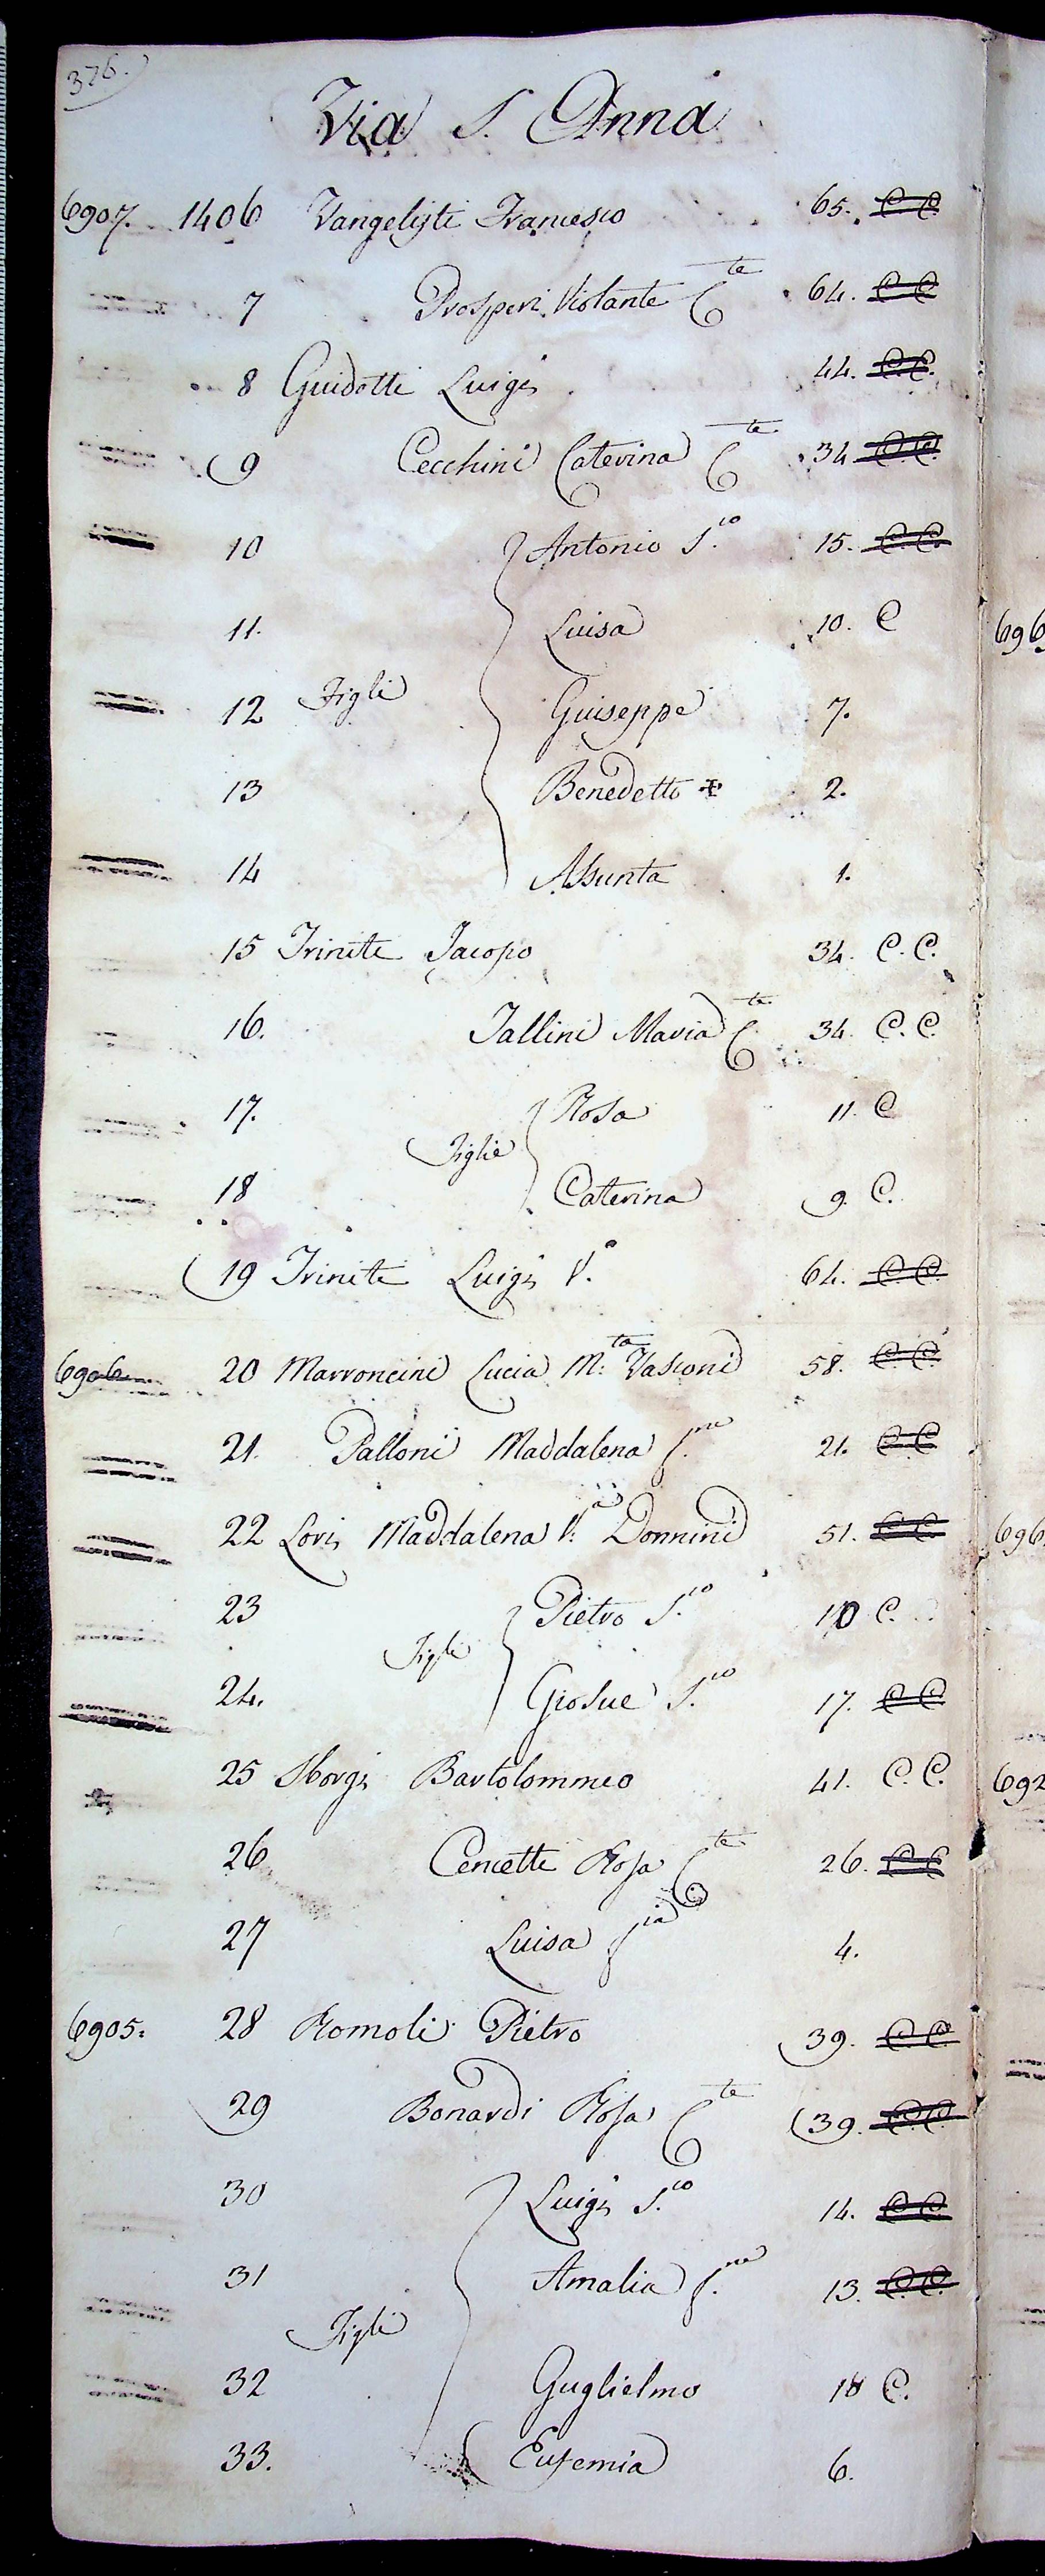 376.
Via S. Anna
6907. 1406 Vangelisti Francesco 65. C C
7 Prosperi Violante C.te 64. C C
8 Guidotti Luigi 44. C C.
9 Cecchini Caterina C.te 34 C. C.
10 Antonio S.co 15. C. C.
11. Luisa 10. C
12 Figli Guiseppe 7.
13 Benedetto 2.
14 Assunta 1.
15 Triniti Jacopo 34. C. C.
16. Tallini Maria C.te 34. C. C
17. Rosa 11. C
Figlie
18 Caterina 9. C.
19 Triniti Luigi V.o 64. C. C.
6906 20 Marroncini Lucia M.ta Vasconi 58. C. C.
21. Palloni Maddalena 21. C C
22 Lori Maddalena V.a Donnini 51. C C.
23 Pietro S.co 10 C.
Figli
24. Giosue S.co 17. C C
25 Sborgi Bartolommeo 41. C. C.
26 Cencetti Rosa C.te 26. C C
27 Luisa f.ia 4.
6905. 28 Romoli Pietro 39. C C
29 Bonardi Rosa C.te 39. C. C.
30 Luigi S.co 14. C C
31 Amalia 13. C. C.
Figli
32 Guglielmo 10 C.
33. Eufemia 6.